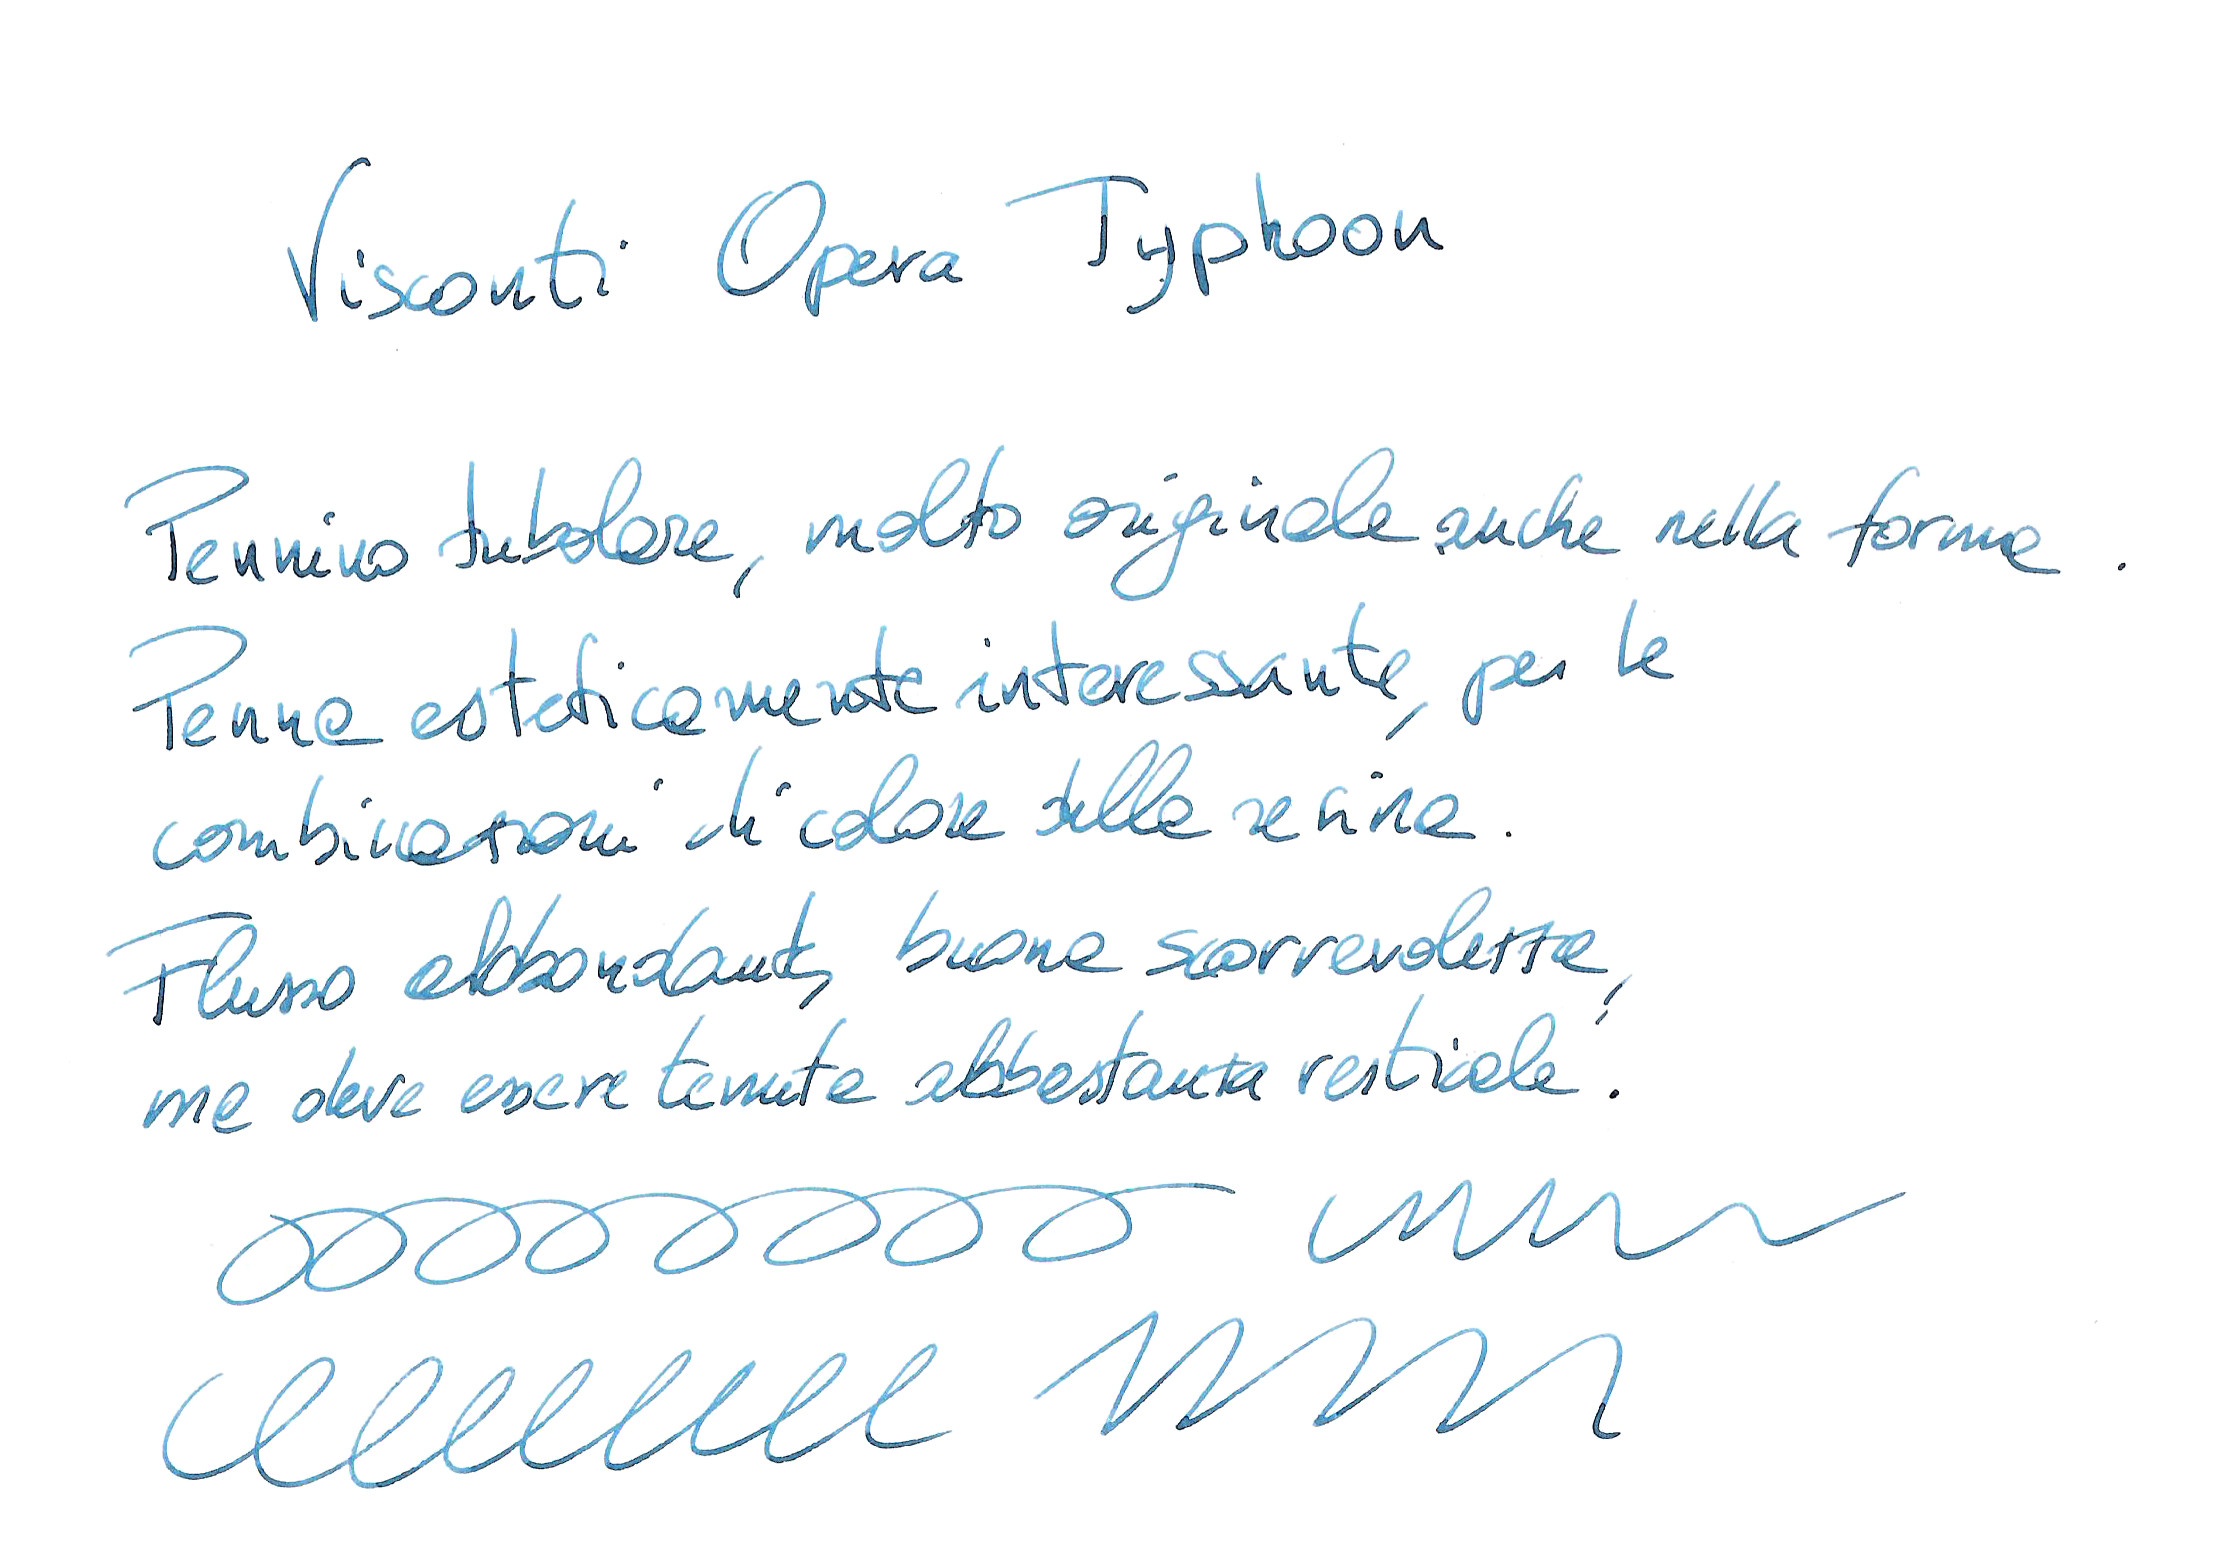 Visconti Opera Typhoon
Pennino tubolare, molto originale anche nella forma.
Penna esteticamente interessante, per le
combinazioni di colore della resina.
Flusso abbondante, buona scorrevolezza,
ma deve essere tenuta abbastanza verticale.